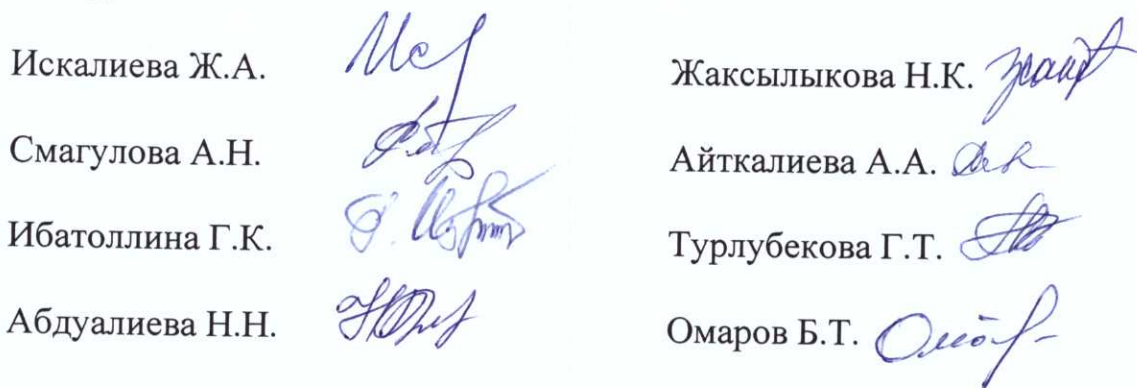 Искалиева Ж.А.
Смагулова А.Н.
Ибатоллина Г.К.
Абдуалиева Н.Н.
Жаксылыкова Н.К.
Айткалиева А.А.
Турлубекова Г.Т.
Омаров Б.Т.